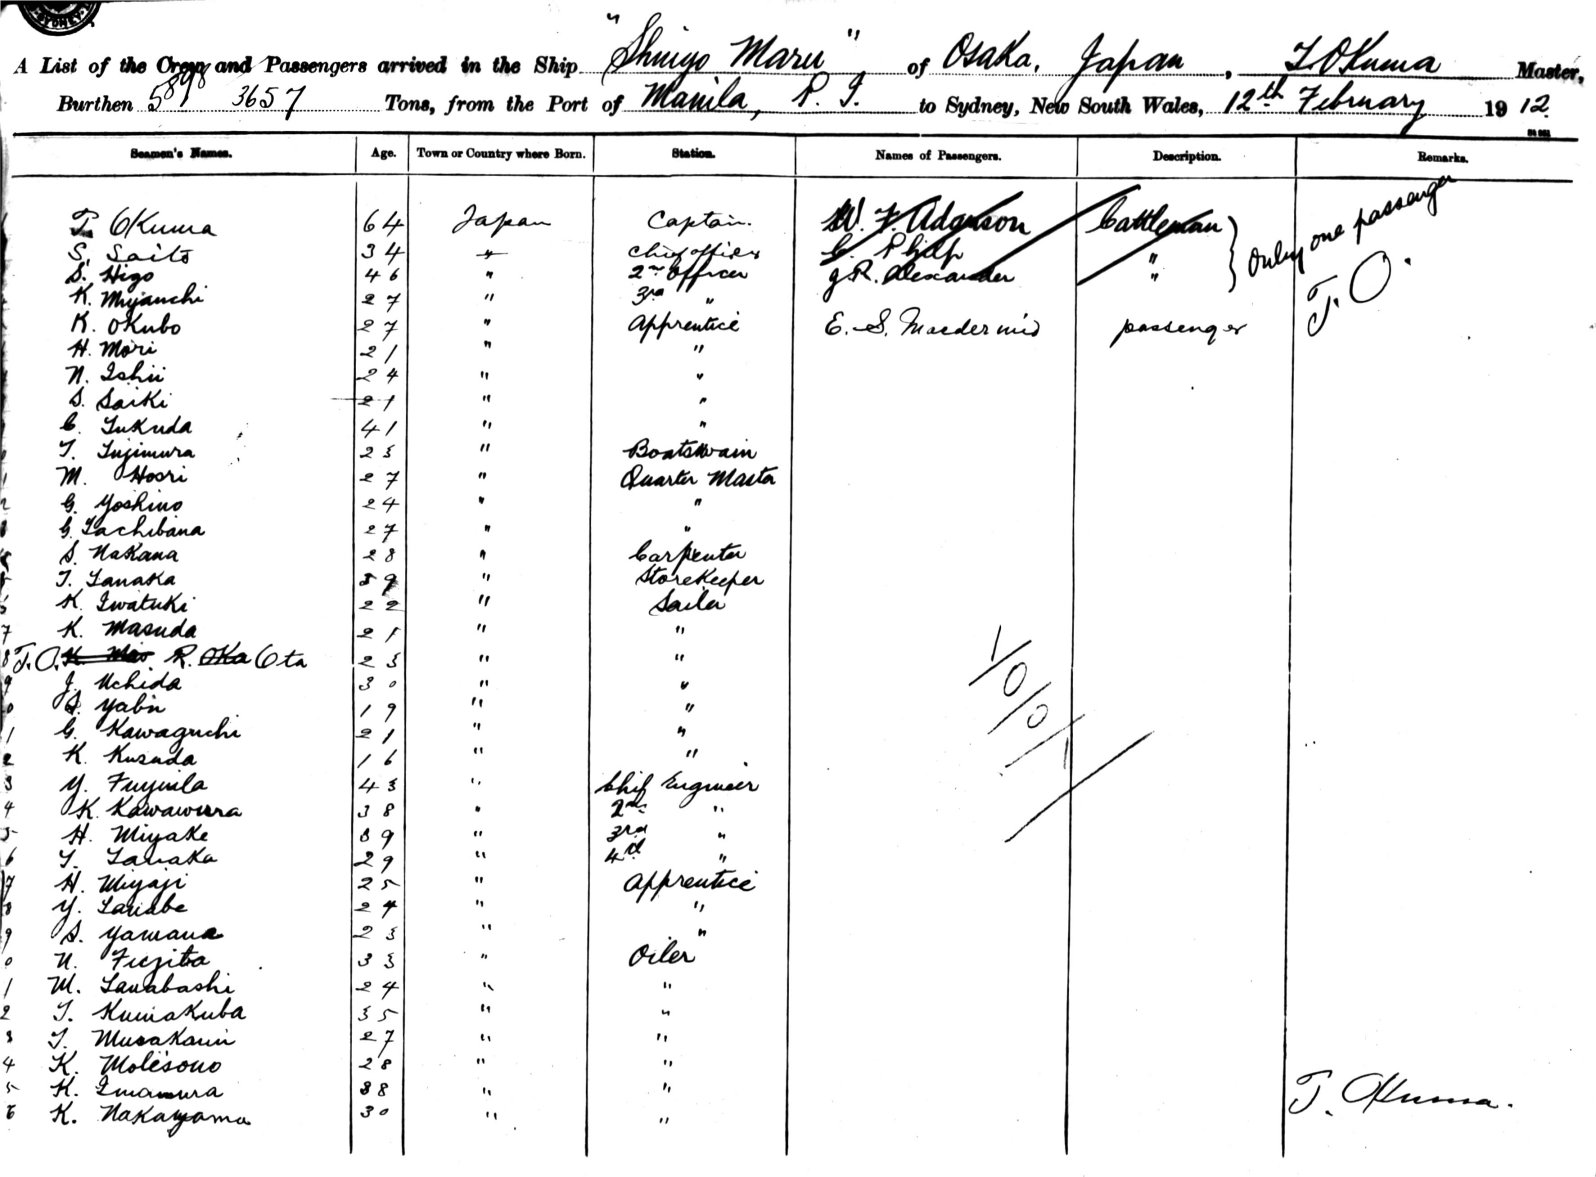 SYDNEY
A List of the Crew and Passengers arrived in the Ship "Shinyo Maru" of Osaka, Japan, T. Okuma Master,
Burthen 5898 3657 Tons, from the Port of Manila, P. I. to Sydney, New South Wales, 12th February 1912
Seamen's Names. Age. Town or Country where Born. Station. Names of Passengers. Description. Remarks.
T. Okuma 64 Japan Captain. W. F. Adamson Cattleman Only one passenger
S. Saito 34 " Chief officer C. Philp " T.O.
S. Higo 46 " 2nd Officer J. R. Alexander "
K. Miyauchi 27 " 3rd "
K. Okubo 27 " Apprentice E. S. Macdermid passenger
H. Mori 21 " "
N. Ishii 24 " "
S. Saiki 21 " "
C. Fukuda 41 " "
T. Fujimura 23 " Boatswain
M. Hosri 27 " Quarter Master
G. Yoshino 24 " "
G. Tachibana 27 " "
S. Nakana 28 " Carpenter
T. Tanaka 39 " Storekeeper
K. Iwatuki 22 " Sailer
7 K. Masuda 21 " "
8 T.O. R. Oka Ota 23 " "
9 J. Uchida 30 " "
0 S. Yabu 19 " "
1 G. Kawaguchi 21 " "
2 K. Kusuda 16 " "
3 Y. Fujiula 43 " Chif Engineer
4 K. Kawawura 38 " 2nd "
5 H. Miyake 39 " 3rd "
6 T. Tanaka 29 " 4d "
7 H. Miyaji 25 " Apprentice
8 Y. Tanabe 24 " "
9 S. Yamana 23 " "
0 N. Fujita 33 " Oiler
1 M. Tanabashi 24 " "
2 T. Kumakuba 35 " "
3 T. Murakami 27 " "
4 K. Molesono 28 " "
5 K. Imamura 38 " " T. Okuma.
6 K. Nakayama 30 " "